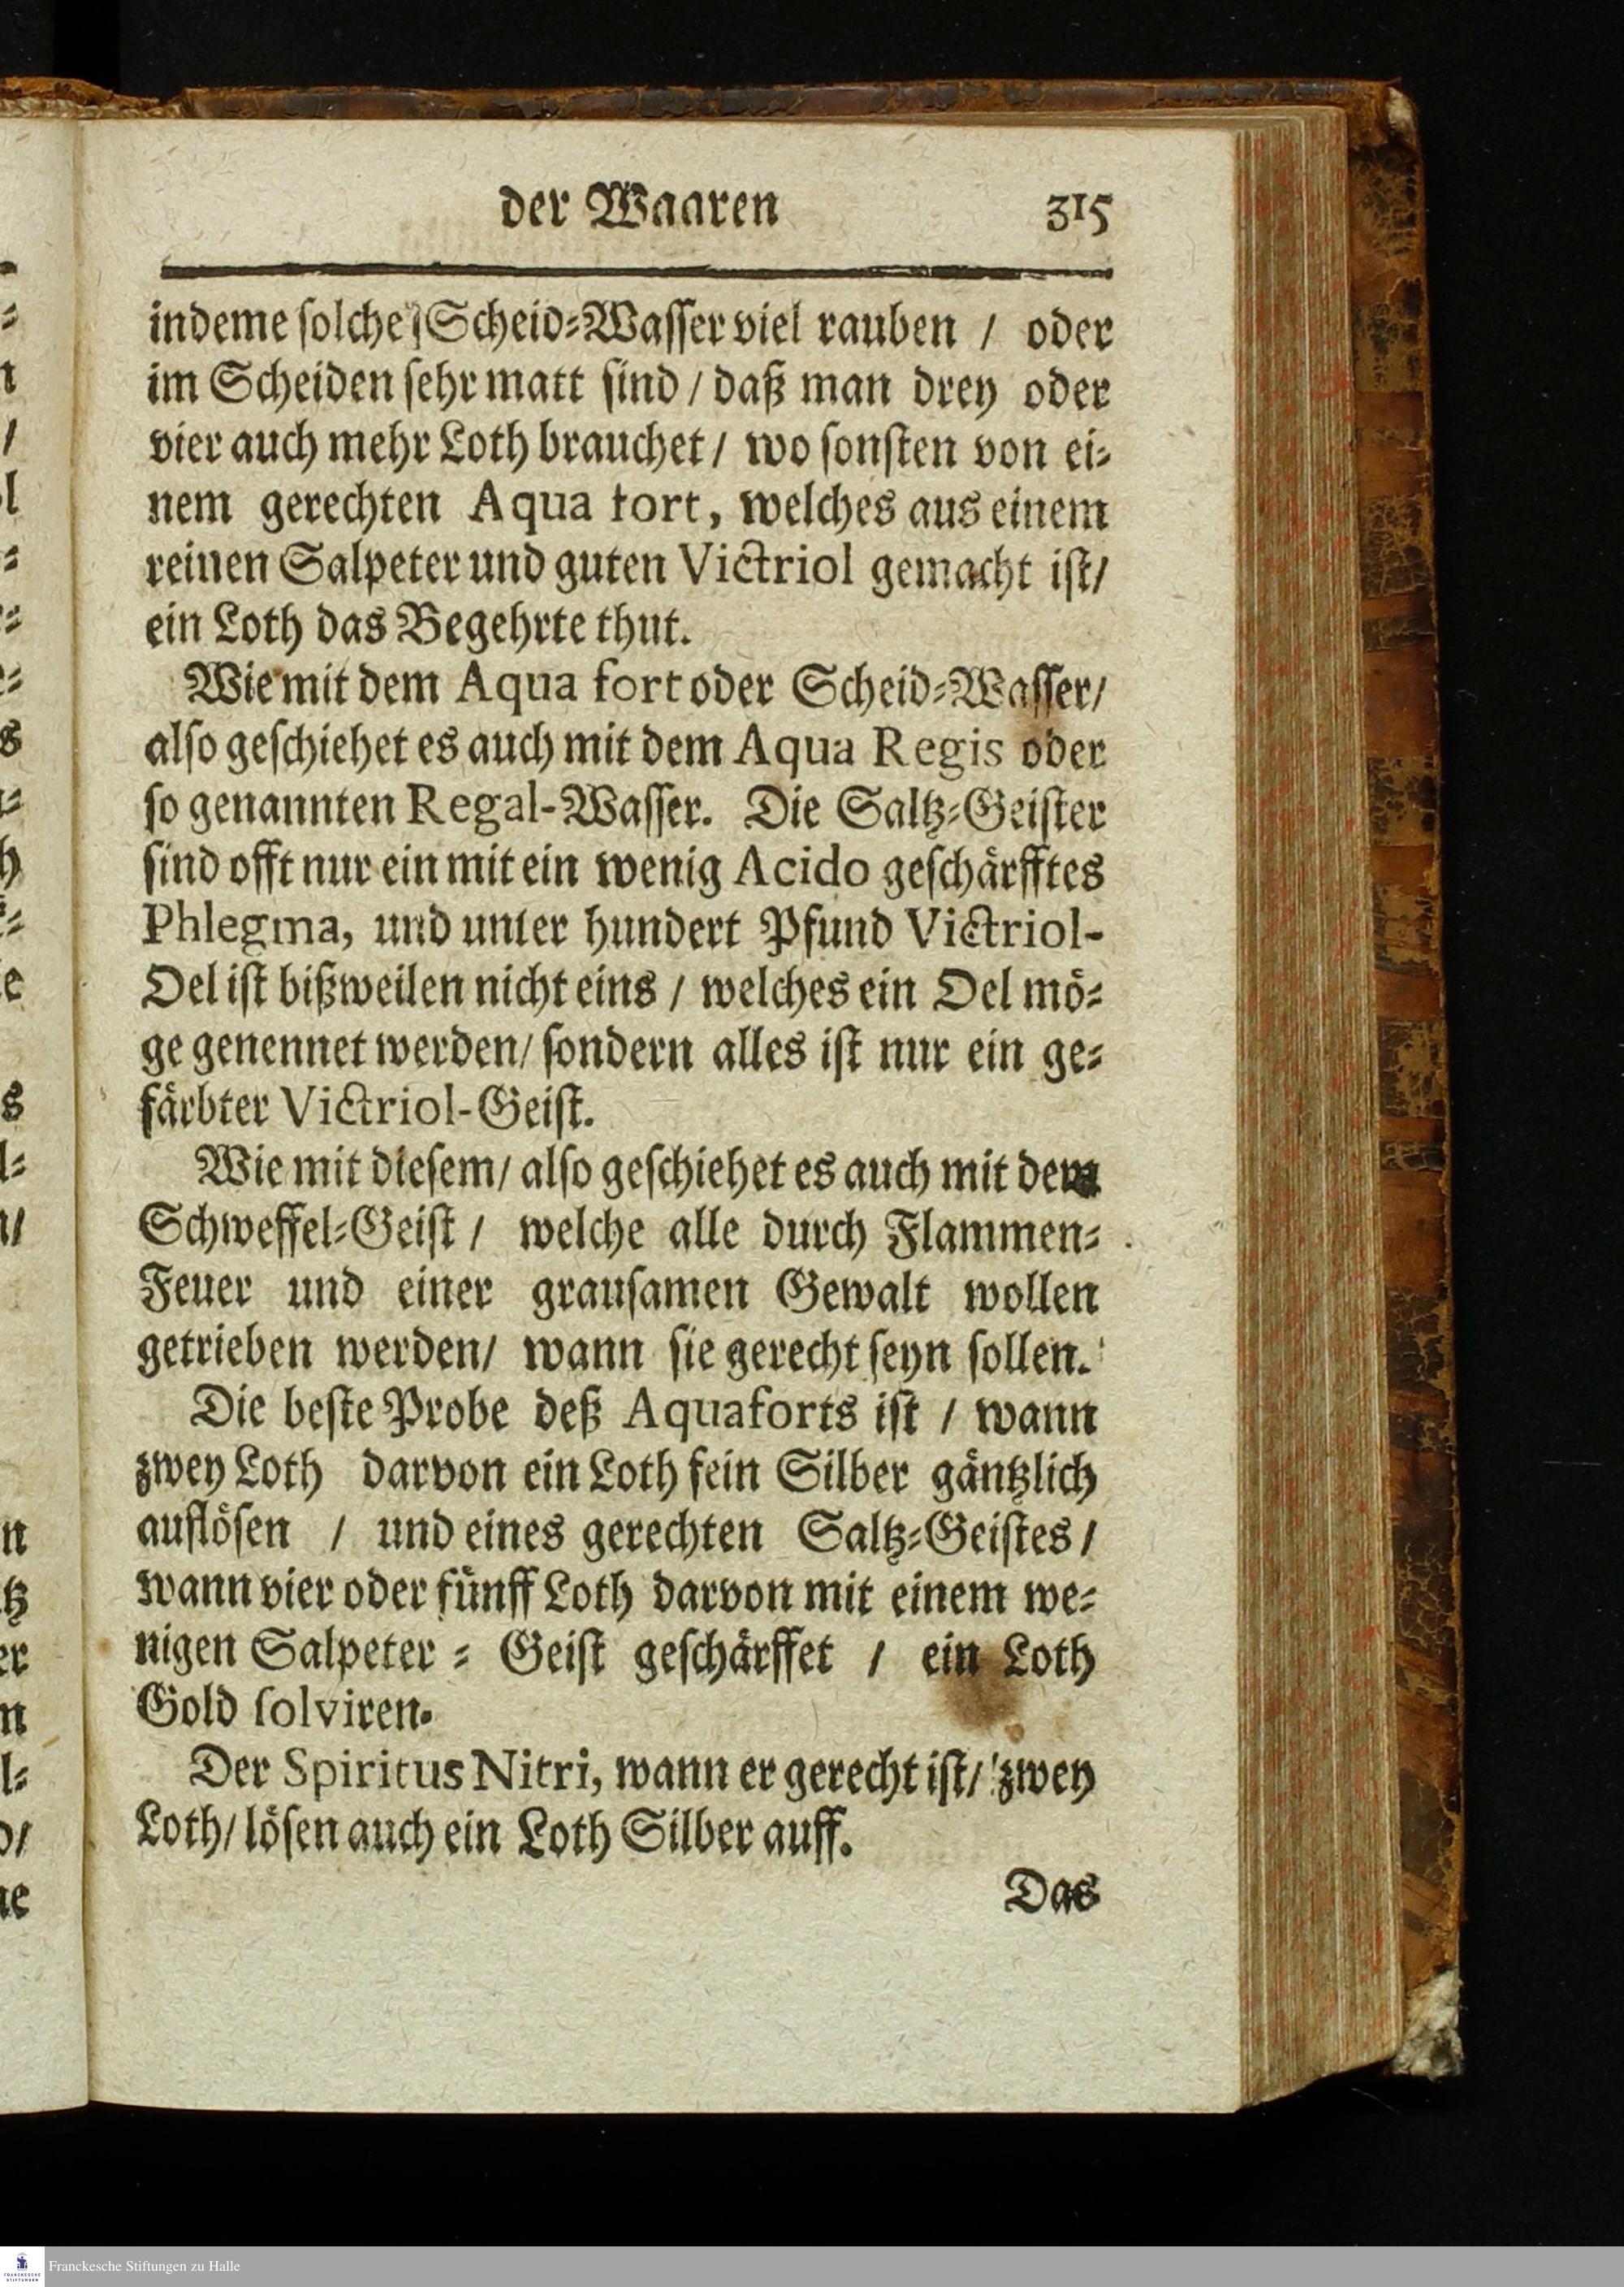 der Waaren 315
indeme ſolche Scheid⸗Waſſer viel rauben / oder
im Scheiden ſehr matt ſind / daß man drey oder
vier auch mehr Loth brauchet / wo ſonſten von ei⸗
nem gerechten Aqua fort, welches aus einem
reinen Salpeter und guten Victriol gemacht iſt/
ein Loth das Begehrte thut.
Wie mit dem Aqua fort oder Scheid⸗Waſſer/
alſo geſchiehet es auch mit dem Aqua Regis oder
ſo genannten Regal-Waſſer. Die Saltz⸗Geiſter
ſind offt nur ein mit ein wenig Acido geſchärfftes
Phlegma, und unter hundert Pfund Victriol-
Oel iſt bißweilen nicht eins / welches ein Oel mö⸗
ge genennet werden/ ſondern alles iſt nur ein ge⸗
färbter Victriol-Geiſt.
Wie mit dieſem/ alſo geſchiehet es auch mit dem
Schweffel⸗Geiſt / welche alle durch Flammen⸗
Feuer und einer grauſamen Gewalt wollen
getrieben werden/ wann ſie gerecht ſeyn ſollen.
Die beſte Probe deß Aquaforts iſt / wann
zwey Loth darvon ein Loth fein Silber gäntzlich
auflöſen / und eines gerechten Saltz⸗Geiſtes /
wann vier oder fünff Loth darvon mit einem we⸗
nigen Salpeter ⸗ Geiſt geſchärffet / ein Loth
Gold ſolviren.
Der Spiritus Nitri, wann er gerecht iſt/ zwey
Loth/ löſen auch ein Loth Silber auff.
Das
Franckesche Stiftungen zu Halle